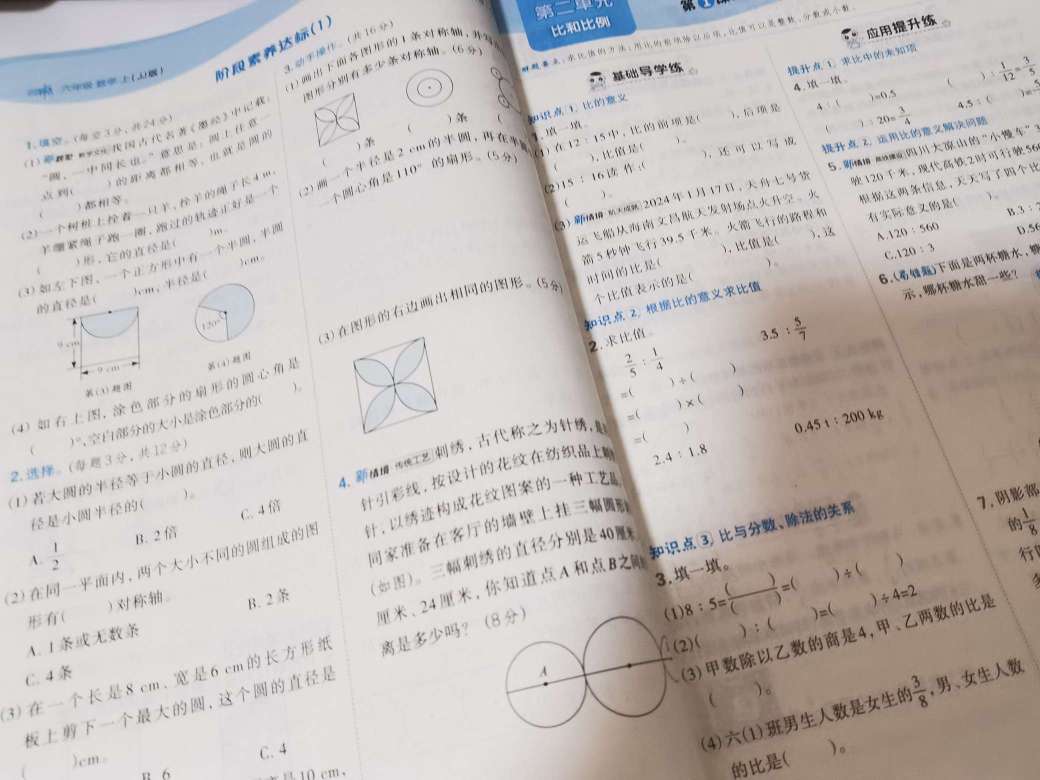 六年级 数学 上(JJ版)
阶段素养达标(1)
1.填空。(每空3分,共24分)
(1)我国古代名著《墨经》中记载:
“圆,一中同长也。”意思是:圆上任意一
点到( )的距离都相等,也就是圆的
( )都相等。
(2)一个树桩上拴着一只羊,拴羊的绳子长4 m,
羊绷紧绳子跑一圈,跑过的轨迹正好是一个
( )形,它的直径是( )m。
(3)如左下图,一个正方形中有一个半圆,半圆
的直径是( )cm,半径是( )cm。
9 cm
9 cm
第(3)题图
120°
第(4)题图
(4)如右上图,涂色部分的扇形的圆心角是
( )°,空白部分的大小是涂色部分的( )。
2.选择。(每题3分,共12分)
(1)若大圆的半径等于小圆的直径,则大圆的直
径是小圆半径的( )。
A. 1/2
B. 2倍
C. 4倍
(2)在同一平面内,两个大小不同的圆组成的图
形有( )对称轴。
A. 1条或无数条
B. 2条
C. 4条
(3)在一个长是8 cm、宽是6 cm的长方形纸
板上剪下一个最大的圆,这个圆的直径是
( )cm。
B. 6
C. 4
是10 cm,
3.动手操作。(共16分)
(1)画出下面各图形的1条对称轴,并
图形分别有多少条对称轴。(6分)
( )条
( )条
(
(2)画一个半径是2 cm的半圆,再在半圆
一个圆心角是110°的扇形。(5分)
(3)在图形的右边画出相同的图形。(5分)
4.新情境 传统工艺 刺绣,古代称之为针绣,是
针引彩线,按设计的花纹在纺织品上刺绣
针,以绣迹构成花纹图案的一种工艺品
同家准备在客厅的墙壁上挂三幅圆形
(如图)。三幅刺绣的直径分别是40厘米
厘米、24厘米,你知道点A和点B之间
离是多少吗?(8分)
A
第二单元
比和比例
第1课
求比值的方法:用比的前项除以后项,比值可以是整数、分数或小数。
基础导学练
知识点 1 比的意义
1.填一填。
(1)在12∶15中,比的前项是( ),后项是
( ),比值是( )。
(2)15∶16读作( ),还可以写成
( )。
(3)新情境 航天成就 2024年1月17日,天舟七号货
运飞船从海南文昌航天发射场点火升空。火
箭5秒钟飞行39.5千米。火箭飞行的路程和
时间的比是( ),比值是( ),这
个比值表示的是( )。
知识点 2 根据比的意义求比值
2.求比值。
2/5∶1/4
3.5∶5/7
=( )÷( )
=( )×( )
=( )
2.4∶1.8
0.45 t∶200 kg
知识点 3 比与分数、除法的关系
3.填一填。
(1)8∶5=( )/( )=( )÷( )
(2)( )∶( )=( )÷4=2
(3)甲数除以乙数的商是4,甲、乙两数的比是
( )。
(4)六(1)班男生人数是女生的3/8,男、女生人数
的比是( )。
应用提升练
提升点 1 求比中的未知项
4.填一填。
4∶( )=0.5
( )∶1/12=3/5
( )∶20=3/4
4.5∶( )=
提升点 2 运用比的意义解决问题
5.新情境 四川大凉山的“小慢车”
驶120千米,现代高铁2时可行驶56
根据这两条信息,天天写了四个比
有实际意义的是( )。
A.120∶560
B.3∶2
C.120∶3
D.56
6.(易错题)下面是两杯糖水,糖
示,哪杯糖水甜一些?
7.阴影部
的1/8
行